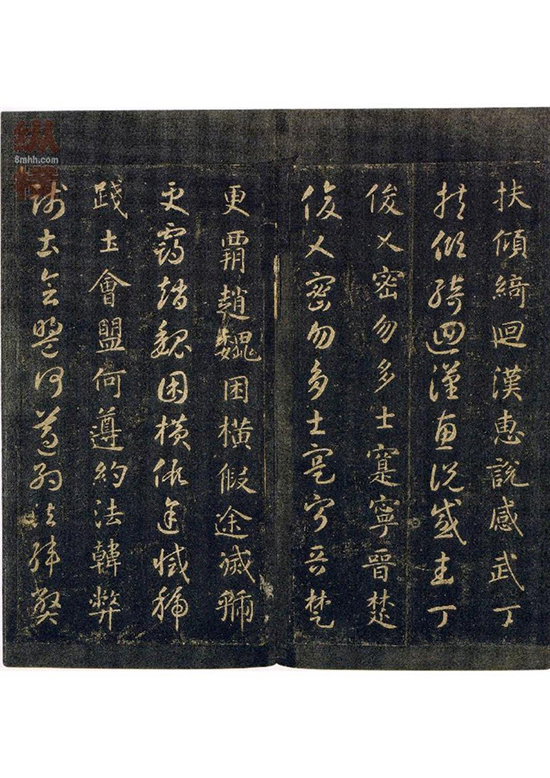 扶傾綺迴漢惠說感武丁
扶傾綺迴漢惠說感武丁
俊乂密勿多士寔寧晉楚
俊乂密勿多士寔寧晉楚
更霸趙魏困橫假途滅虢
更霸趙魏困橫假途滅虢
踐土會盟何遵約法韓弊
踐土會盟何遵約法韓弊
纵横
8mhh.com